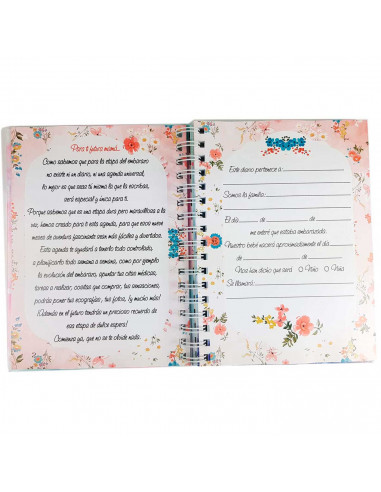 Para ti futura mamá...
Como sabemos que para la etapa del embarazo
no existe ni un diario, ni una agenda universal,
lo mejor es que seas tú mamá la que la escribas,
será especial y única para ti.
Porque sabemos que es una etapa dura pero maravillosa a la
vez, hemos creado para ti esta agenda, para que esos nueve
meses de aventura fascinante sean más fáciles y divertidos.
Esta agenda te ayudará a tenerlo todo controlado,
a planificarlo todo semana a semana, como por ejemplo
la evolución del embarazo, apuntar tus citas médicas,
tareas a realizar, cositas que comprar, tus sensaciones,
podrás poner tus ecografías, tus fotos, ¡y mucho más!
¡Además en el futuro tendrás un precioso recuerdo de
esa etapa de dulce espera!
Comienza ya, que no se te olvide nada.
Este diario pertenece a:
Somos la familia:
El día de de
me enteré que estaba embarazada.
Nuestro bebé nacerá aproximadamente el día
de de
Nos han dicho que será O Niño O Niña
Se llamará: